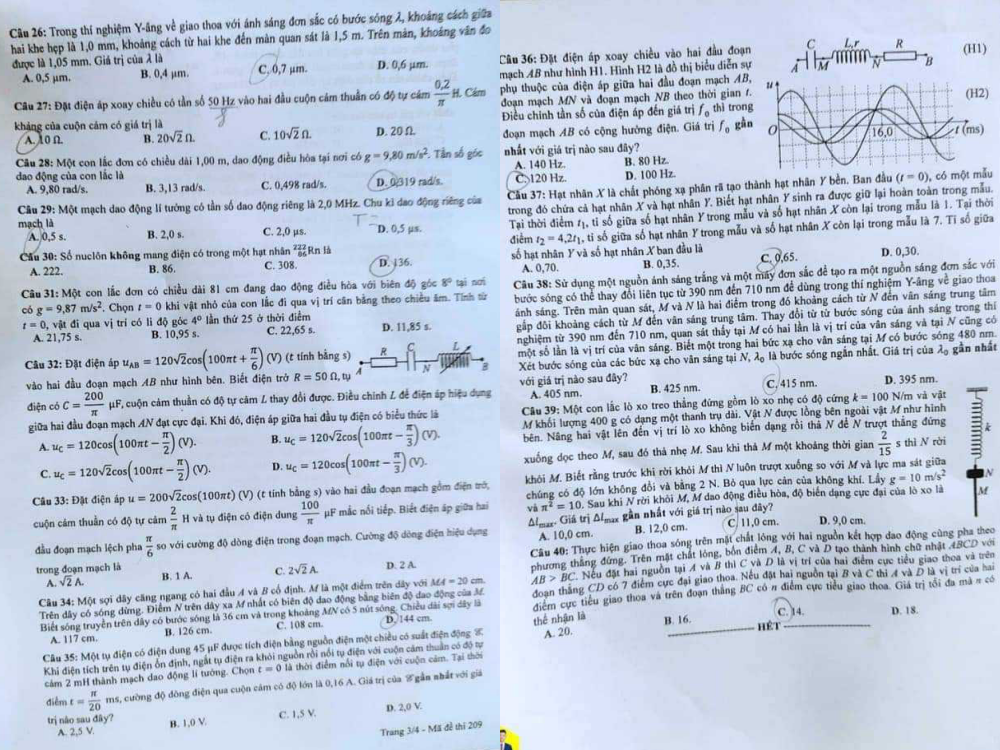 Câu 26: Trong thí nghiệm Y-âng về giao thoa với ánh sáng đơn sắc có bước sóng λ, khoảng cách giữa
hai khe hẹp là 1,0 mm, khoảng cách từ hai khe đến màn quan sát là 1,5 m. Trên màn, khoảng vân đo
được là 1,05 mm. Giá trị của λ là
A. 0,5 μm. B. 0,4 μm. C. 0,7 μm. D. 0,6 μm.
Câu 27: Đặt điện áp xoay chiều có tần số 50 Hz vào hai đầu cuộn cảm thuần có độ tự cảm 0,2/π H. Cảm
kháng của cuộn cảm có giá trị là
A. 10 Ω. B. 20√2 Ω. C. 10√2 Ω. D. 20 Ω.
Câu 28: Một con lắc đơn có chiều dài 1,00 m, dao động điều hòa tại nơi có g = 9,80 m/s². Tần số góc
dao động của con lắc là
A. 9,80 rad/s. B. 3,13 rad/s. C. 0,498 rad/s. D. 0,319 rad/s.
Câu 29: Một mạch dao động lí tưởng có tần số dao động riêng là 2,0 MHz. Chu kì dao động riêng của
mạch là
A. 0,5 s. B. 2,0 s. C. 2,0 μs. D. 0,5 μs.
Câu 30: Số nuclôn không mang điện có trong một hạt nhân ²²²₈₆Rn là
A. 222. B. 86. C. 308. D. 136.
Câu 31: Một con lắc đơn có chiều dài 81 cm đang dao động điều hòa với biên độ góc 8⁰ tại nơi
có g = 9,87 m/s². Chọn t = 0 khi vật nhỏ của con lắc đi qua vị trí cân bằng theo chiều âm. Tính từ
t = 0, vật đi qua vị trí có li độ góc 4⁰ lần thứ 25 ở thời điểm
A. 21,75 s. B. 10,95 s. C. 22,65 s. D. 11,85 s.
Câu 32: Đặt điện áp u_AB = 120√2cos(100πt + π/6) (V) (t tính bằng s)
A R C N L B
vào hai đầu đoạn mạch AB như hình bên. Biết điện trở R = 50 Ω, tụ
điện có C = 200/π μF, cuộn cảm thuần có độ tự cảm L thay đổi được. Điều chỉnh L để điện áp hiệu dụng
giữa hai đầu đoạn mạch AN đạt cực đại. Khi đó, điện áp giữa hai đầu tụ điện có biểu thức là
A. u_C = 120cos(100πt − π/2) (V). B. u_C = 120√2cos(100πt − π/3) (V).
C. u_C = 120√2cos(100πt − π/2) (V). D. u_C = 120cos(100πt − π/3) (V).
Câu 33: Đặt điện áp u = 200√2cos(100πt) (V) (t tính bằng s) vào hai đầu đoạn mạch gồm điện trở,
cuộn cảm thuần có độ tự cảm 2/π H và tụ điện có điện dung 100/π μF mắc nối tiếp. Biết điện áp giữa hai
đầu đoạn mạch lệch pha π/6 so với cường độ dòng điện trong đoạn mạch. Cường độ dòng điện hiệu dụng
trong đoạn mạch là
A. √2 A. B. 1 A. C. 2√2 A. D. 2 A.
Câu 34: Một sợi dây căng ngang có hai đầu A và B cố định. M là một điểm trên dây với MA = 20 cm.
Trên dây có sóng dừng. Điểm N trên dây xa M nhất có biên độ dao động bằng biên độ dao động của M.
Biết sóng truyền trên dây có bước sóng là 36 cm và trong khoảng MN có 5 nút sóng. Chiều dài sợi dây là
A. 117 cm. B. 126 cm. C. 108 cm. D. 144 cm.
Câu 35: Một tụ điện có điện dung 45 μF được tích điện bằng nguồn điện một chiều có suất điện động ℰ.
Khi điện tích trên tụ điện ổn định, ngắt tụ điện ra khỏi nguồn rồi nối tụ điện với cuộn cảm thuần có độ tự
cảm 2 mH thành mạch dao động lí tưởng. Chọn t = 0 là thời điểm nối tụ điện với cuộn cảm. Tại thời
điểm t = π/20 ms, cường độ dòng điện qua cuộn cảm có độ lớn là 0,16 A. Giá trị của ℰ gần nhất với giá
trị nào sau đây?
A. 2,5 V. B. 1,0 V. C. 1,5 V. D. 2,0 V.
Trang 3/4 - Mã đề thi 209
Câu 36: Đặt điện áp xoay chiều vào hai đầu đoạn
mạch AB như hình H1. Hình H2 là đồ thị biểu diễn sự
phụ thuộc của điện áp giữa hai đầu đoạn mạch AB,
đoạn mạch MN và đoạn mạch NB theo thời gian t.
Điều chỉnh tần số của điện áp đến giá trị f₀ thì trong
đoạn mạch AB có cộng hưởng điện. Giá trị f₀ gần
nhất với giá trị nào sau đây?
A. 140 Hz. B. 80 Hz.
C. 120 Hz. D. 100 Hz.
A C M L,r N R B (H1)
u O 16,0 t (ms) (H2)
Câu 37: Hạt nhân X là chất phóng xạ phân rã tạo thành hạt nhân Y bền. Ban đầu (t = 0), có một mẫu
trong đó chứa cả hạt nhân X và hạt nhân Y. Biết hạt nhân Y sinh ra được giữ lại hoàn toàn trong mẫu.
Tại thời điểm t₁, tỉ số giữa số hạt nhân Y trong mẫu và số hạt nhân X còn lại trong mẫu là 1. Tại thời
điểm t₂ = 4,2t₁, tỉ số giữa số hạt nhân Y trong mẫu và số hạt nhân X còn lại trong mẫu là 7. Tỉ số giữa
số hạt nhân Y và số hạt nhân X ban đầu là
A. 0,70. B. 0,35. C. 0,65. D. 0,30.
Câu 38: Sử dụng một nguồn ánh sáng trắng và một máy đơn sắc để tạo ra một nguồn sáng đơn sắc với
bước sóng có thể thay đổi liên tục từ 390 nm đến 710 nm để dùng trong thí nghiệm Y-âng về giao thoa
ánh sáng. Trên màn quan sát, M và N là hai điểm trong đó khoảng cách từ N đến vân sáng trung tâm
gấp đôi khoảng cách từ M đến vân sáng trung tâm. Thay đổi từ từ bước sóng của ánh sáng trong thí
nghiệm từ 390 nm đến 710 nm, quan sát thấy tại M có hai lần là vị trí của vân sáng và tại N cũng có
một số lần là vị trí của vân sáng. Biết một trong hai bức xạ cho vân sáng tại M có bước sóng 480 nm.
Xét bước sóng của các bức xạ cho vân sáng tại N, λ₀ là bước sóng ngắn nhất. Giá trị của λ₀ gần nhất
với giá trị nào sau đây?
A. 405 nm. B. 425 nm. C. 415 nm. D. 395 nm.
Câu 39: Một con lắc lò xo treo thẳng đứng gồm lò xo nhẹ có độ cứng k = 100 N/m và vật
M khối lượng 400 g có dạng một thanh trụ dài. Vật N được lồng bên ngoài vật M như hình
bên. Nâng hai vật lên đến vị trí lò xo không biến dạng rồi thả N để N trượt thẳng đứng
xuống dọc theo M, sau đó thả nhẹ M. Sau khi thả M một khoảng thời gian 2/15 s thì N rời
khỏi M. Biết rằng trước khi rời khỏi M thì N luôn trượt xuống so với M và lực ma sát giữa
chúng có độ lớn không đổi và bằng 2 N. Bỏ qua lực cản của không khí. Lấy g = 10 m/s²
và π² = 10. Sau khi N rời khỏi M, M dao động điều hòa, độ biến dạng cực đại của lò xo là
Δl_max. Giá trị Δl_max gần nhất với giá trị nào sau đây?
A. 10,0 cm. B. 12,0 cm. C. 11,0 cm. D. 9,0 cm.
k
N
M
Câu 40: Thực hiện giao thoa sóng trên mặt chất lỏng với hai nguồn kết hợp dao động cùng pha theo
phương thẳng đứng. Trên mặt chất lỏng, bốn điểm A, B, C và D tạo thành hình chữ nhật ABCD với
AB > BC. Nếu đặt hai nguồn tại A và B thì C và D là vị trí của hai điểm cực tiểu giao thoa và trên
đoạn thẳng CD có 7 điểm cực đại giao thoa. Nếu đặt hai nguồn tại B và C thì A và D là vị trí của hai
điểm cực tiểu giao thoa và trên đoạn thẳng BC có n điểm cực tiểu giao thoa. Giá trị tối đa mà n có
thể nhận là
A. 20. B. 16. C. 14. D. 18.
HẾT